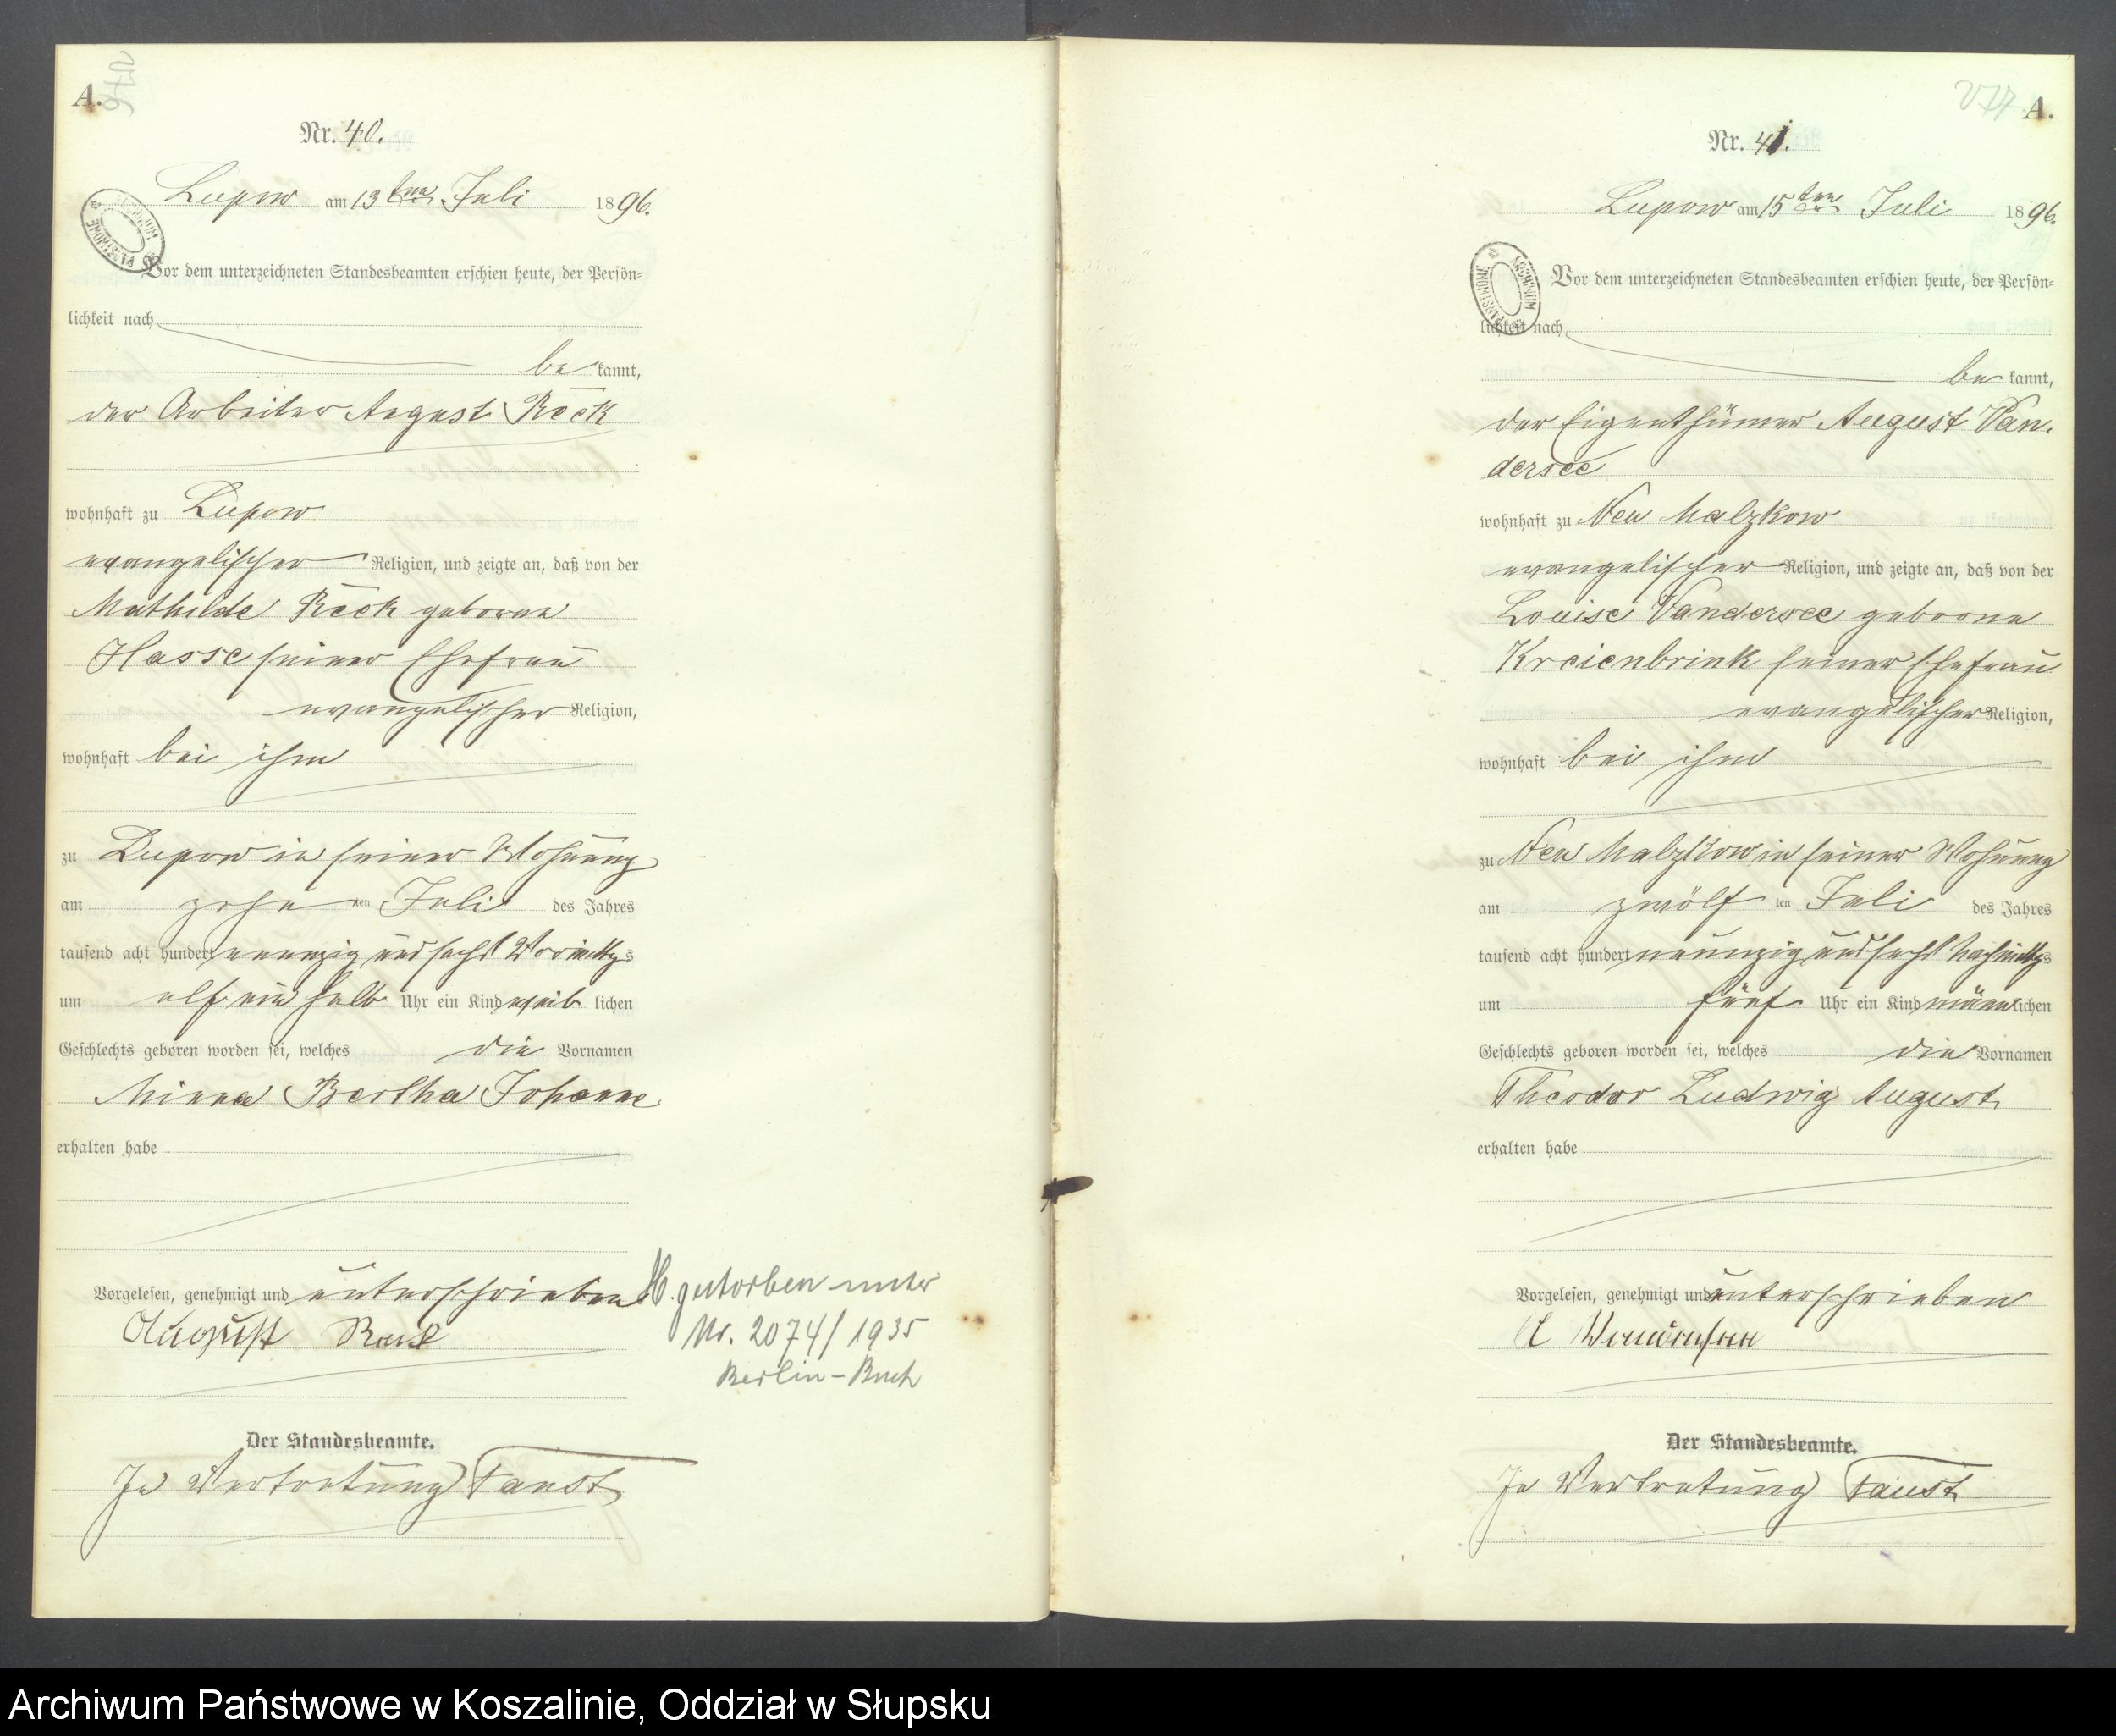 A.
Nr. 40.
Lupow am 13ten Juli 1896.
Vor dem unterzeichneten Standesbeamten erschien heute, der Persön-
lichkeit nach
bekannt,
der Arbeiter August Reek
wohnhaft zu Lupow
evangelischer Religion, und zeigte an, daß von der
Mathilde Reek geborene
Hasse seiner Ehefrau
evangelischer Religion,
wohnhaft bei ihm
zu Lupow in seiner Wohnung
am zehnten Juli des Jahres
tausend acht hundert neunzig und sechs Vormittags
um elf ein halb Uhr ein Kind weiblichen
Geschlechts geboren worden sei, welches die Vornamen
Minna Bertha Johanne
erhalten habe
Vorgelesen, genehmigt und unterschrieben
August
Der Standesbeamte.
In Vertretung Faust
gestorben unter
Nr. 2074/1935
Berlin-Buch
A.
Nr. 41.
Lupow am 15ten Juli 1896.
ARCHIWUM PAŃSTWOWE
Vor dem unterzeichneten Standesbeamten erschien heute, der Persön-
lichkeit nach
bekannt,
der Eigenthümer August Van-
dersee
wohnhaft zu Neu Malzkow
evangelischer Religion, und zeigte an, daß von der
Louise Vandersee geborne
Kreienbrink seiner Ehefrau
evangelischer Religion,
wohnhaft bei ihm
zu Neu Malzkow in seiner Wohnung
am zwölften Juli des Jahres
tausend acht hundert neunzig und sechs Nachmittags
um fünf Uhr ein Kind männlichen
Geschlechts geboren worden sei, welches die Vornamen
Theodor Ludwig August
erhalten habe
Vorgelesen, genehmigt und unterschrieben
A Vandersee
Der Standesbeamte.
In Vertretung Faust
Archiwum Państwowe w Koszalinie, Oddział w Słupsku